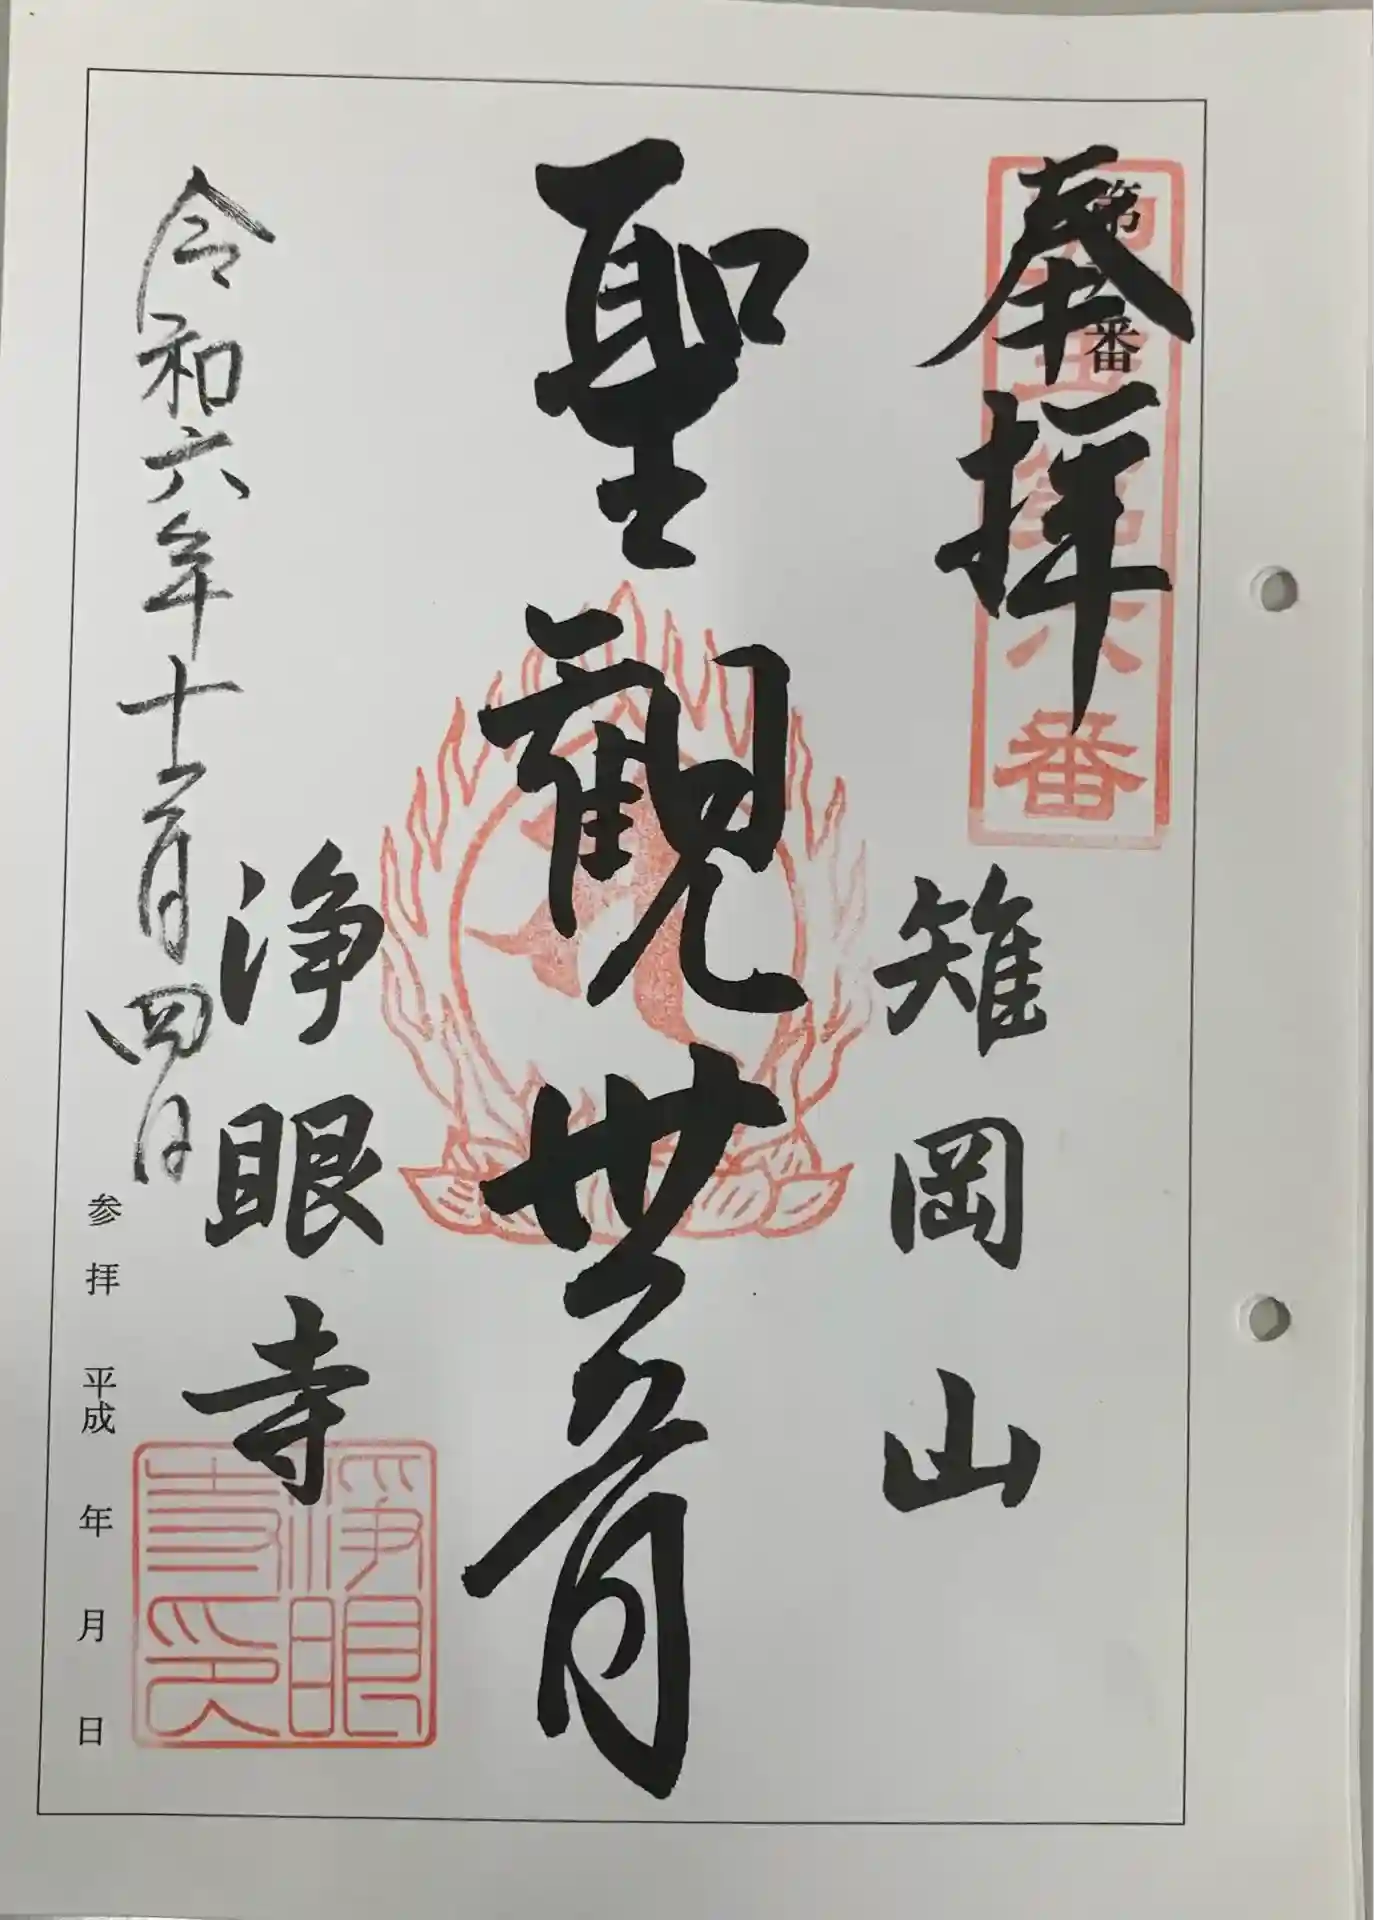 奉拝
第 番
番
雉岡山
聖観世音
浄眼寺
浄眼寺印
令和六年十二月四日
参拝 平成 年 月 日